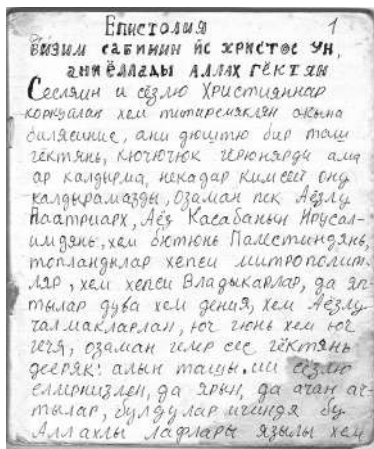 Епистолия 1
визим сабинин ис христос ун,
ани ёллады аллах гёктян
Сеслян и сёзлю Християннар
коркуалан хем титиремяклян окына
билясиние, ани дюштю бир таш
гёктянь, кючючюк герюнярди ама
ар калдырма, некадар кимсей ону
калдырамазды, озаман пек Аёзлу
Паатриарх, Аёз Касабанын Ирусал-
имдянь, хем бютюнь Палестиндянь,
топландылар хепси митрополит-
ляр, хем хепси Владыкарлар, да яп-
тылар дува хем дения, хем Аёзлу
чалмакларлан, юч гюнь хем юч
гечя, озаман гелер сес гёктянь
дееряк: алын ташы
сёзлю
еллернизлен, да ярын, да ачан ач-
тылар, булдулар ичиндя бу
Аллахлы лафлары языль хем